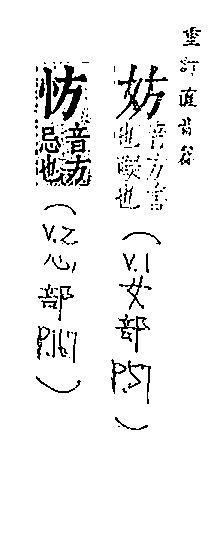 重訂直音篇
妨 音方害也礙也 (V.1 女部 P.57)
㤃 音方忌也 (V.2 心部 P.167)